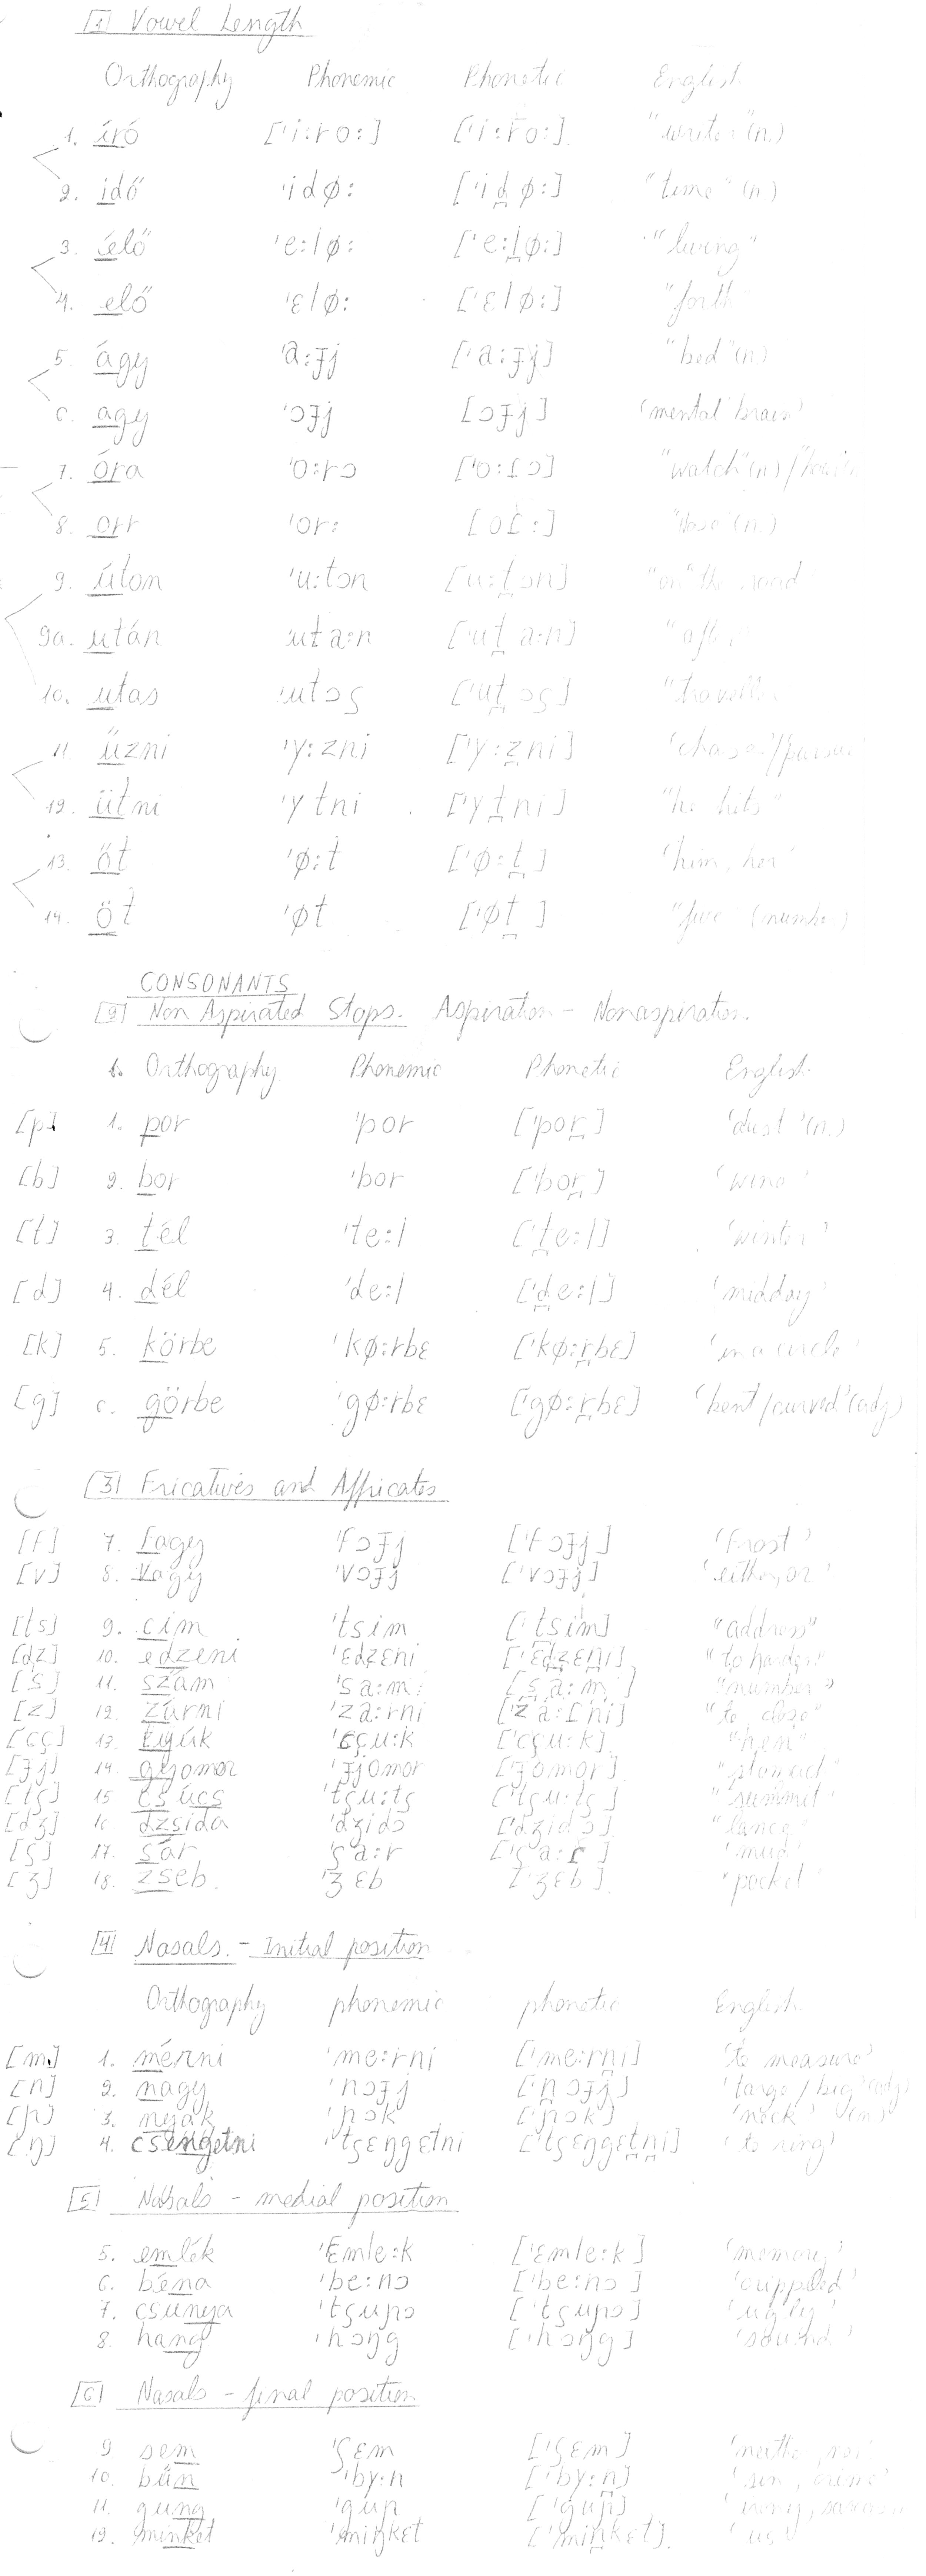 [1] Vowel Length
Orthography Phonemic Phonetic English
1. író ['i:ro:] ['i:r̆o:] "writer" (n.)
2. idő 'idø: ['id̪ø:] "time" (n)
3. élő 'e:lø: ['e:l̪ø:] "living"
4. elő 'ɛlø: ['ɛlø:] "forth
5. ágy 'a:ɟj ['a:ɟj] "bed" (n)
6. agy 'ɔɟj [ɔɟj] (mental brain)
7. óra 'o:rɔ ['o:ɾɔ] "watch" (n) /
8. orr 'or: [oɾ̆:] "Nose" (n.)
9. úton 'u:tɔn [u:t̪ɔn] "on" the road
9a. után uta:n ['ut̪a:n]
10. utas 'utɔʂ ['ut̪ɔʂ] "traveller
11. űzni 'y:zni ['y:z̪ni] "chase"/
12. ütni 'ytni ['yt̪ni] "he hits"
13. őt 'ø:t ['ø:t̪] "him, her"
14. öt 'øt ['øt̪] "five (number)
CONSONANTS
[2] Non Aspirated Stops. Aspiration - Nonaspiration.
Orthography Phonemic Phonetic English
[p] 1. por 'por ['por̪] 'dust' (n.)
[b] 2. bor 'bor ['bor̪] 'wine'
[t] 3. tél 'te:l ['t̪e:l] 'winter'
[d] 4. dél 'de:l ['d̪e:l] 'midday'
[k] 5. körbe 'kø:rbɛ ['kø:r̪bɛ] 'in a circle'
[g] 6. görbe 'gø:rbɛ ['gø:r̪bɛ] 'bent/curved' (adj)
[3] Fricatives and Affricates
[f] 7. Fagy 'fɔɟj ['fɔɟj] 'Frost'
[v] 8. Vagy 'vɔɟj ['vɔɟj] 'either, or'
[ts] 9. cím 'tsim ['t̪sim] "address"
[dz] 10. edzeni 'ɛdzɛni ['ɛd̪zɛn̪i] "to harden"
[s] 11. szám 'sa:m: [s̪a:m] "number"
[z] 12. zárni 'za:rni ['za:ɾni] "to close"
[cç] 13. tyúk 'cçu:k ['cçu:k] "hen"
[ɟj] 14. gyomor 'ɟjomor ['ɟomor] "stomach"
[tʂ] 15 csúcs 'tʂu:ts ['tʂu:ts] "summit"
[dʒ] 16 dzsida 'dʒidɔ ['dʒid̪ɔ] "lance"
[ʂ] 17. sár 'ʂa:r ['ʂa:ɾ] 'mud
[ʒ] 18. zseb. 'ʒɛb ['ʒɛb]. "pocket"
[4] Nasals. - Initial position
Orthography phonemic phonetic English
[m] 1. mérni 'me:rni ['me:rn̪i] 'to measure'
[n] 2. nagy 'nɔɟj ['n̪ɔɟj] 'large / big' (adj)
[ɲ] 3. nyak 'ɲɔk ['ɲɔk] 'neck' (n.)
[ŋ] 4. csengetni 'tʂɛŋgɛtni ['tʂɛŋgɛt̪n̪i] 'to ring)
[5] Nasals - medial position
5. emlék 'ɛmle:k ['ɛmle:k] 'memory'
6. béna 'be:nɔ ['be:nɔ] 'crippled'
7. csunya 'tʂuɲɔ ['tʂuɲɔ] 'ugly'
8. hang 'hɔŋg ['hɔŋg] 'sound'
[6] Nasals - final position
9. sem 'ʂɛm ['ʂɛm]
10. bűn 'by:n ['by:n̪] 'sin, crime'
11. gúny 'guɲ ['guɲ]
12. minket 'miŋkɛt ['miŋkɛt]. 'us'